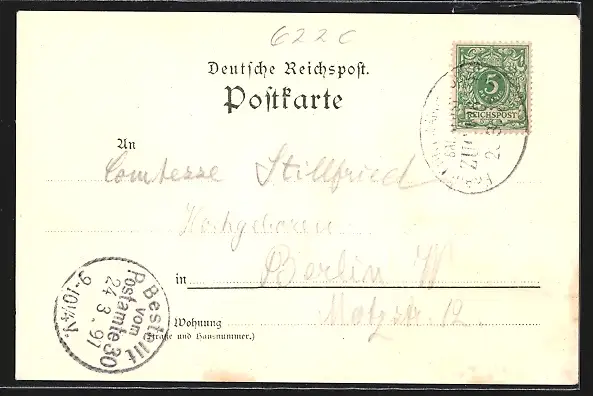 622c
Deutsche Reichspost.
Postkarte
5
REICHSPOST
An
Comtesse Stillfried
Hochgeboren
in Berlin W
Motzstr. 12.
Wohnung
(Straße und Hausnummer.)
Bestellt
vom
Postamte 30
24 3. 97
9-10¼V.